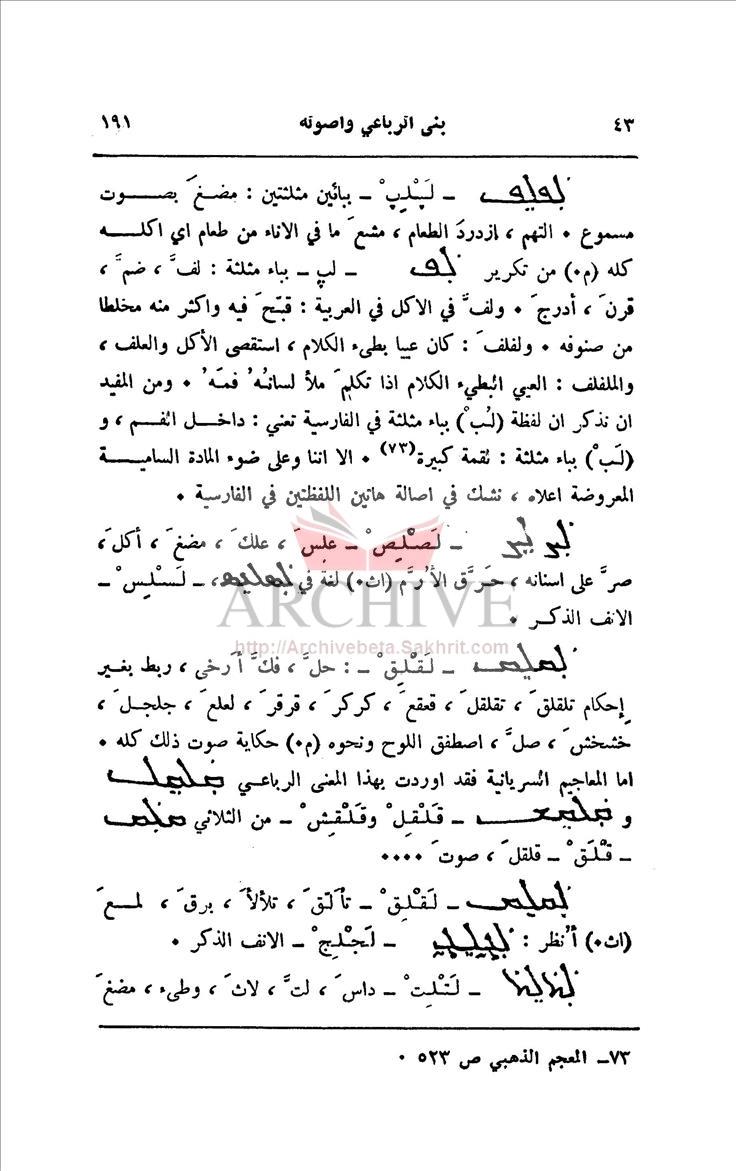 ٤٣ بنى الرباعي واصوله ١٩١
ـ لَپْلِپْ ـ ببائين مثلثتين : مضغَ بصوت
مسموع ٠ التهم ، ازدردَ الطعام ، مشعَ ما في الاناء من طعام اي اكله
كله (م٠) من تكرير ܠܦ ـ لپ ـ بباء مثلثة : لفَّ ، ضمَّ ،
قرنَ ، أدرجَ ٠ ولفَّ في الاكل في العربية : قبّحَ فيه واكثر منه مخلطا
من صنوفه ٠ ولفلفَ : كان عييا بطيء الكلام ، استقصى الأكل والعلف ،
والملفلف : العيي البطيء الكلام اذا تكلمَ ملأ لسانهُ فمَهُ ٠ ومن المفيد
ان نذكر ان لفظة (لُبْ) بباء مثلثة في الفارسية تعني : داخل الفم ، و
(لَبْ) بباء مثلثة : لقمة كبيرة(٧٣) ٠ الا اننا وعلى ضوء المادة السامية
المعروضة اعلاه ، نشك في اصالة هاتين اللفظتين في الفارسية ٠
ـ لَصْلِصْ ـ علسَ ، علكَ ، مضغَ ، أكلَ ،
صرَّ على اسنانه ، حَرَّق الأُرَّم (اث٠) لغة في ، ـ لَسْلِسْ ـ
الانف الذكر ٠
ARCHIVE
http://Archivebeta.Sakhrit.com
ـ لَقْلِقْ ـ : حلَّ ، فكَّ أَرخى ، ربط بغير
إحكام تلقلقَ ، تقلقلَ ، قعقعَ ، كركرَ ، قرقرَ ، لعلعَ ، جلجلَ ،
خشخشَ ، صلَّ ، اصطفق اللوح ونحوه (م٠) حكاية صوت ذلك كله ٠
اما المعاجيم السريانية فقد اوردت بهذا المعنى الرباعي
و ـ قَلْقِلْ وقَلْقِشْ ـ من الثلاثي
ـ قْلَقْ ـ قلقلَ ، صوتَ ٠٠٠٠
ـ لَقْلِقْ ـ تألّقَ ، تلألأَ ، برقَ ، لمعَ
(اث٠) أُنظر : ـ لَجْلِجْ ـ الانف الذكر ٠
ـ لَتْلِتْ ـ داسَ ، لتَّ ، لاثَ ، وطىء ، مضغَ
٧٣ـ المعجم الذهبي ص ٥٢٣ ٠